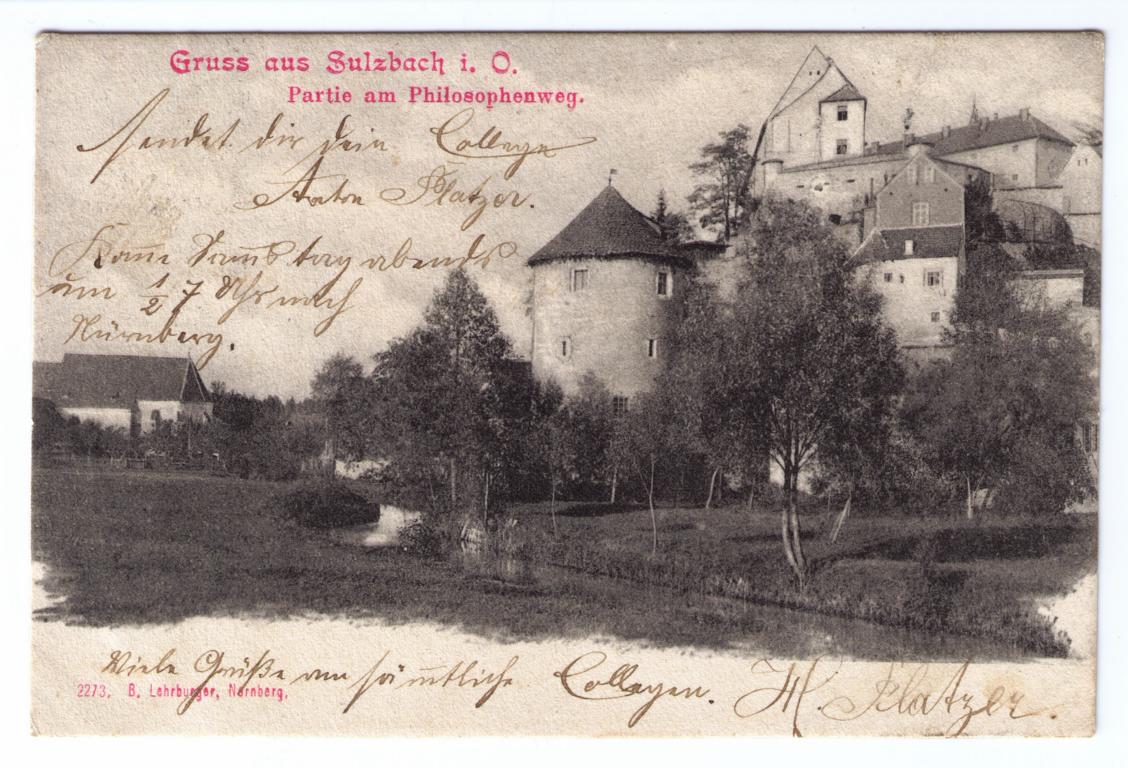 Gruss aus Sulzbach i. O.
Partie am Philosophenweg.
sendet dir dein College
Anton Platzer.
Kome Samstag abends
um ½ 7 Uhr nach
Nürnberg.
Viele Grüße an sämtliche Collegen. Platzer.
2273. B. Lehrburger, Nürnberg.